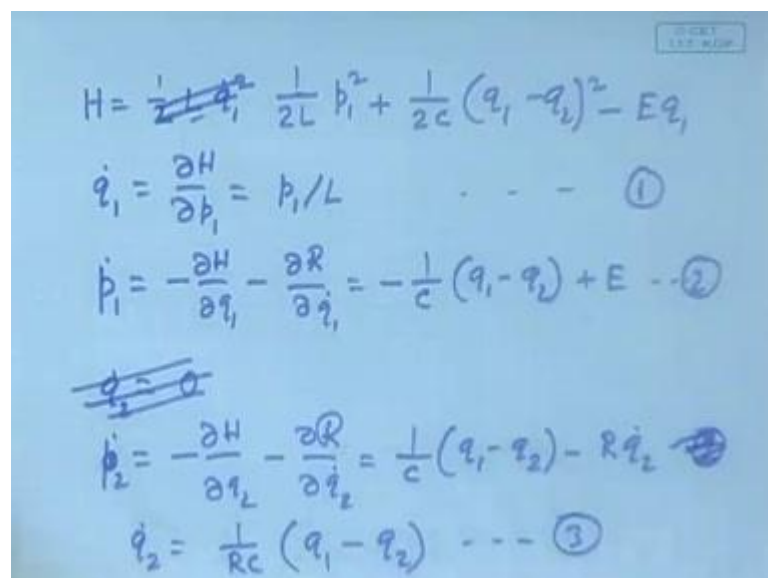 H = 1/2L p₁² + 1/2C (q₁ - q₂)² - Eq₁
q̇₁ = ∂H/∂p₁ = p₁/L . . - ①
ṗ₁ = -∂H/∂q₁ - ∂R/∂q̇₁ = -1/C (q₁ - q₂) + E --②
q̇₂ = 0
ṗ₂ = -∂H/∂q₂ - ∂R/∂q̇₂ = 1/C (q₁ - q₂) - Rq̇₂
q̇₂ = 1/RC (q₁ - q₂) ---- ③